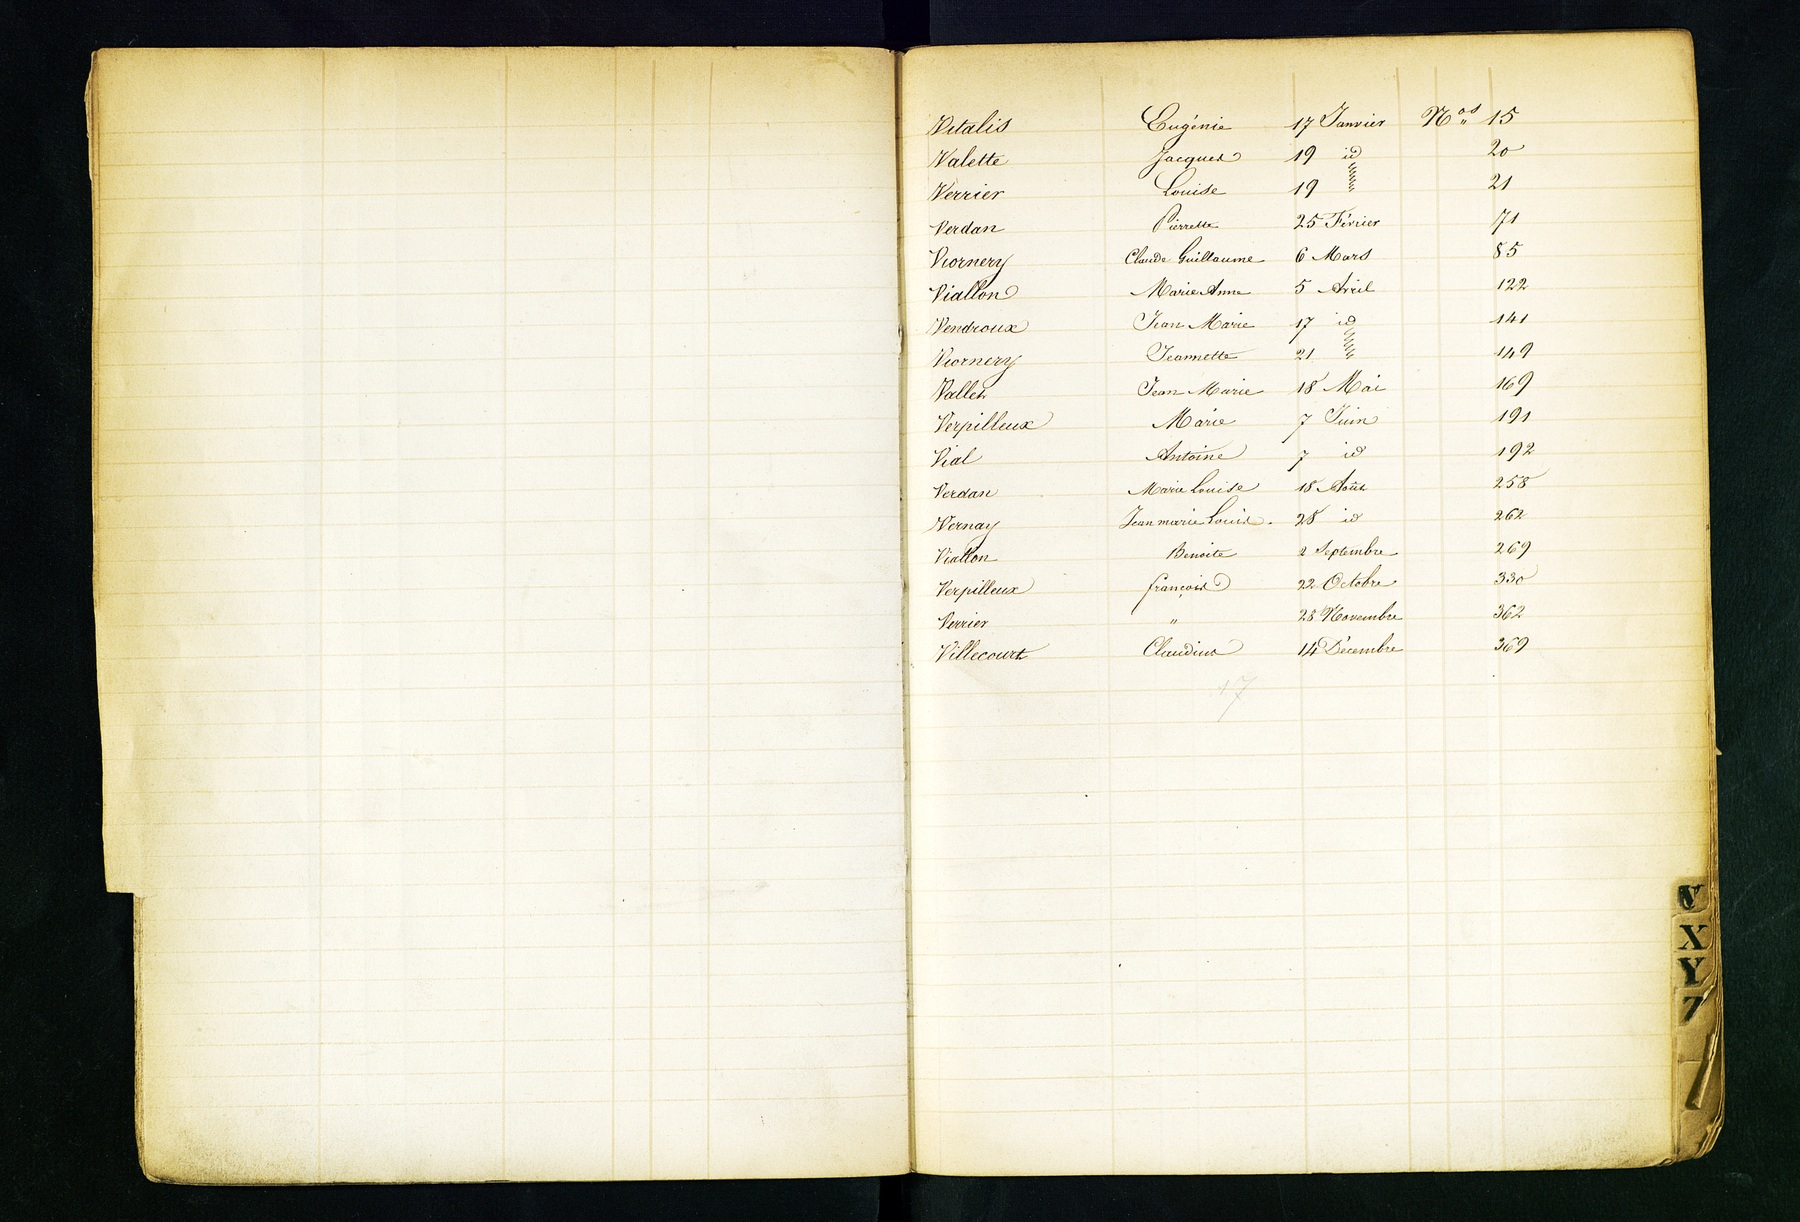 Vitalis Eugénie 17 Janvier Nos 15
Valette Jacques 19 id 20
Verrier Louise 19 " 21
Verdan Pierrette 25 Février 71
Viornery Claude Guillaume 6 Mars 85
Viallon Marie Anne 5 Avril 122
Vendroux Jean Marie 17 id 141
Viornery Jeannette 21 " 149
Vallet Jean Marie 18 Mai 169
Verpilleux Marie 7 Juin 191
Vial Antoine 7 id 192
Verdan Marie Louise 18 Août 258
Vernay Jean marie Louis 28 id 262
Viallon Benoite 2 Septembre 269
Verpilleux françois 22 Octobre 330
Verrier " 28 Novembre 362
Villecourt Claudius 14 Décembre 369
17
V
X
Y
Z